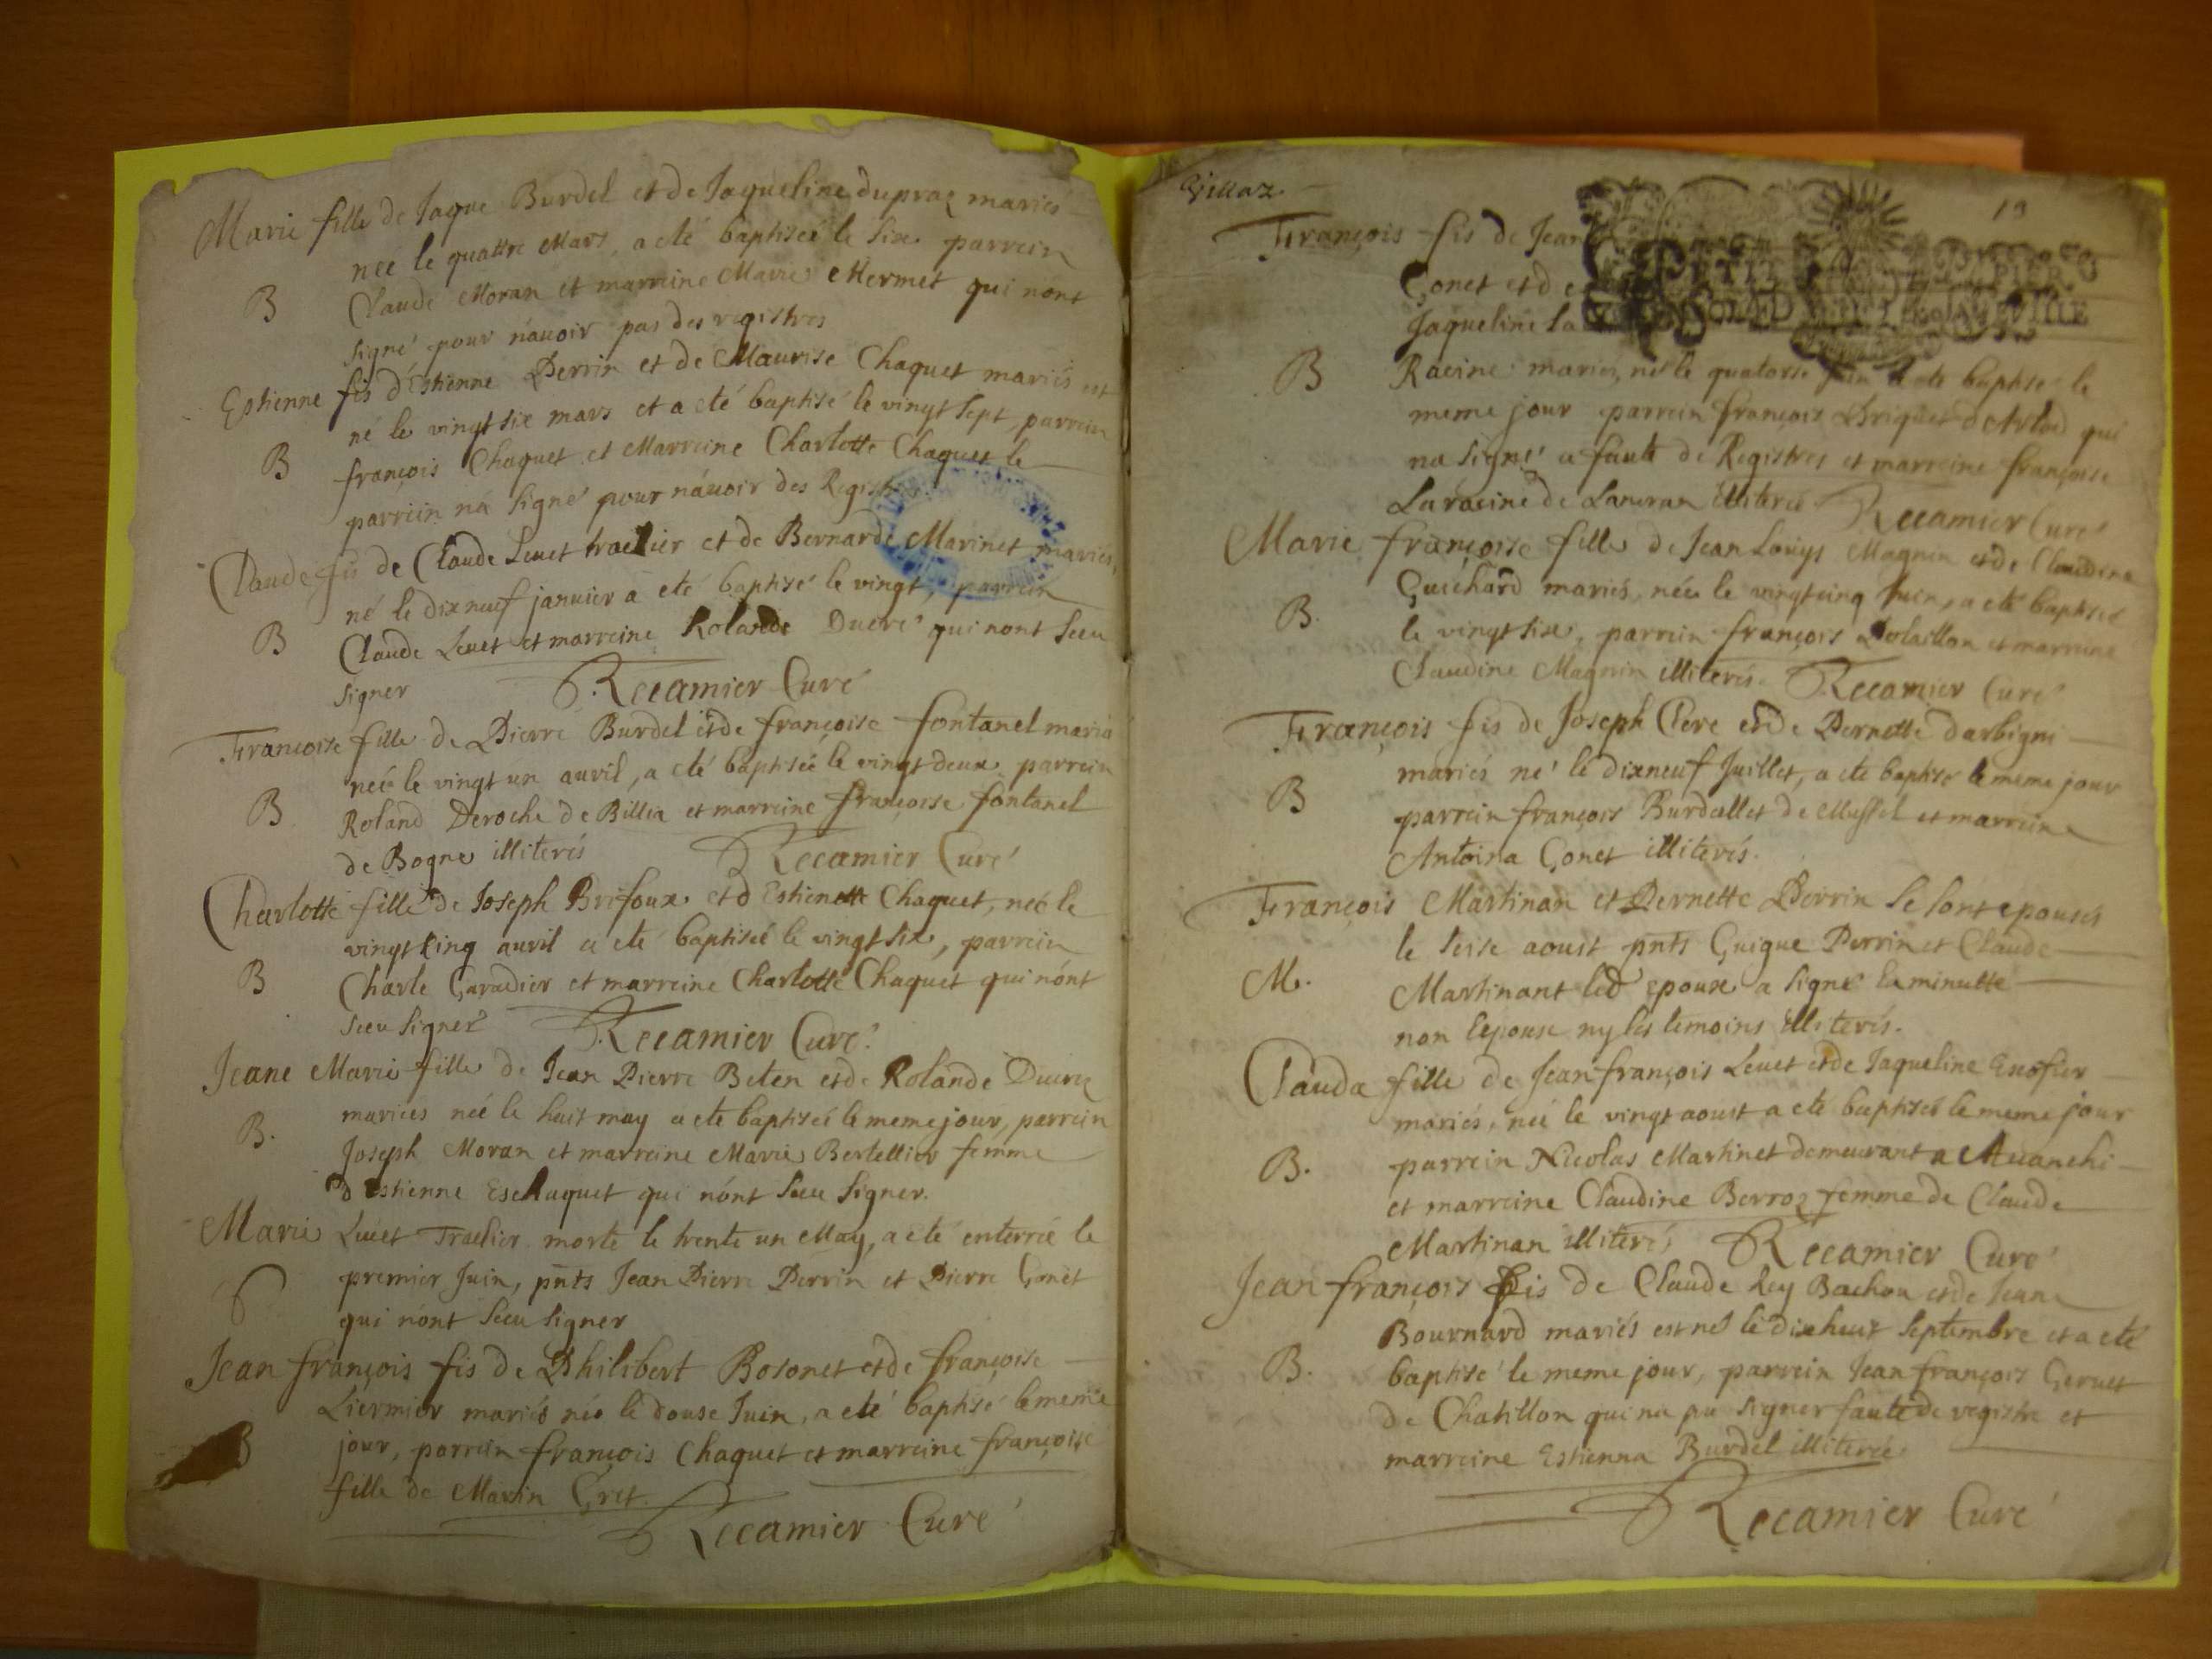 Marie fille de Jaque Burdel et de Jaqueline dupraz mariés
née le quattre Mars, a eté baptiséé le six parrein
B
Claude Moran et marreine Marie Mermet qui nont
signé pour nauoir pas des registres
Estienne fis d'Estienne Perrin et de Maurise Chaquet mariés est
né le vingt six mars et a eté baptisé le vingt sept, parrein
B
françois Chaquet et Marreine Charlotte Chaquet le
parrein na signé pour náuoir des Registres
Claude fis de Claude Leuet traelier et de Bernarde Marinet mariés,
né le dixneuf januier a eté baptisé le vingt, parrein
B
Claude Leuet et marreine Rolande Ducré qui nont sceu
signer Recamier Curé
Françoise fille de Pierre Burdel et de françoise fontanel mariés
néé le vingt un auril, a eté baptiséé le vingt deux parrein
B
Roland Deroche de Billia et marreine françoise fontanel
de Bogne illiterés Recamier Curé
Charlotte fille de Joseph Brifoux et d Estienette Chaquet, néé le
vingt cinq auril a eté baptiséé le vingt six, parrein
B
Charle Garadier et marreine Charlotte Chaquet qui nónt
sceu signer Recamier Curé.
Jeane Marie fille de Jean Pierre Beten et de Rolande Ducre
mariés néé le huit may a eté baptiséé le meme jour, parrein
B.
Joseph Moran et marreine Marie Bertellier femme
d Estienne Eschaquet qui nónt sceu signer.
Marie Leuet Traelier morte le trente un May, a eté enterréé le
premier Juin, pnts Jean Pierre Perrin et Pierre Gonet
S
qui nónt sceu signer
Jean françois fis de Philibert Bosonet et de françoise
Liermier mariés né le douse Juin, a eté baptisé le meme
B
jour, parrein françois Chaquet et marreine françoise
fille de Marin Gret.
Recamier Curé
19
François fis de Jean
Gonet et de
PETIT PAPIER
Jaqueline la
B
Racine mariés, né le quatorse Juin a eté baptisé le
meme jour parrein françois Briquet d'Arlod qui
na signé a faute de Registres et marreine françoise
Laracine de Lancran illiteréé Recamier Curé
Marie françoise fille de Jean Louys Magnin et de Claudine
Guichard mariés, née le vingt cinq Juin, a eté baptiséé
B.
le vingt six, parrein françois Bolaillon et marreine
Claudine Magnin illiterés. Recamier Curé
François fis de Joseph Clere et de Pernette darbigni
mariés né le dixneuf Juillet, a eté baptisé le meme jour
B
parrein françois Burdallet de Mussel et marreine
Antoina Gonet illiterés.
François Martinan et Pernette Perrin se sont épousés
le seise aoust pnts Guigue Perrin et Claude
M.
Martinant led epoux a signé la minutte
non l'epouse ny les temoins illiterés.
Clauda fille de Jean françois Leuet et de Jaqueline
mariés, néé le vingt aoust a eté baptiséé le meme jour
B.
parrein Nicolas Martinet demeurant a
et marreine Claudine Berroz femme de Claude
Martinan illiterés Recamier Curé
Jean françois fis de Claude Rey Bachon et de Jeane
Bournard mariés est né le dixhuit Septembre et a eté
B.
baptisé le meme jour, parrein Jean françois Geruet
de Chatillon qui na pu signer faute de registre et
marreine Estienna Burdel illiteréé
Recamier Curé